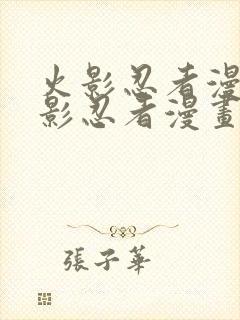 火影忍者漫
影忍者漫畫
張子華